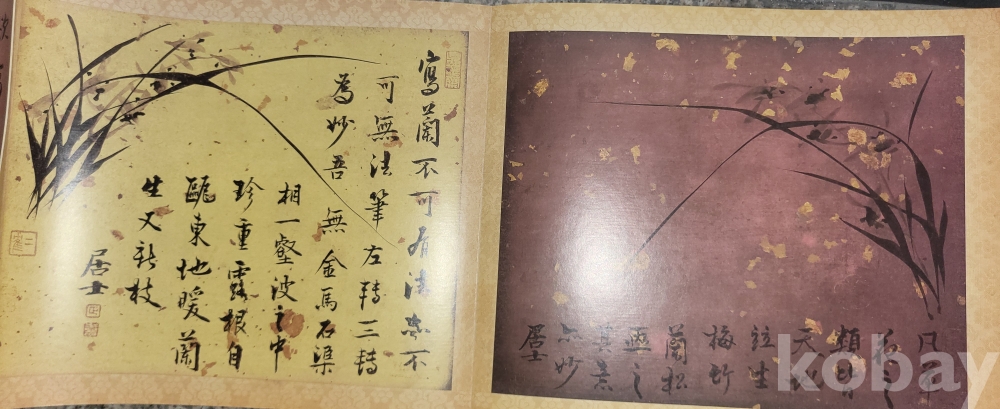 寫蘭不可有法亦不
可無法筆左轉三轉
為妙吾無金馬石渠
相一壑波之中
珍重露根自
甌東地暖蘭
生又新枝
居士
凡草
之
類皆
天
竝生
梅竹
蘭松
之
其意
亦妙
居士
kobay